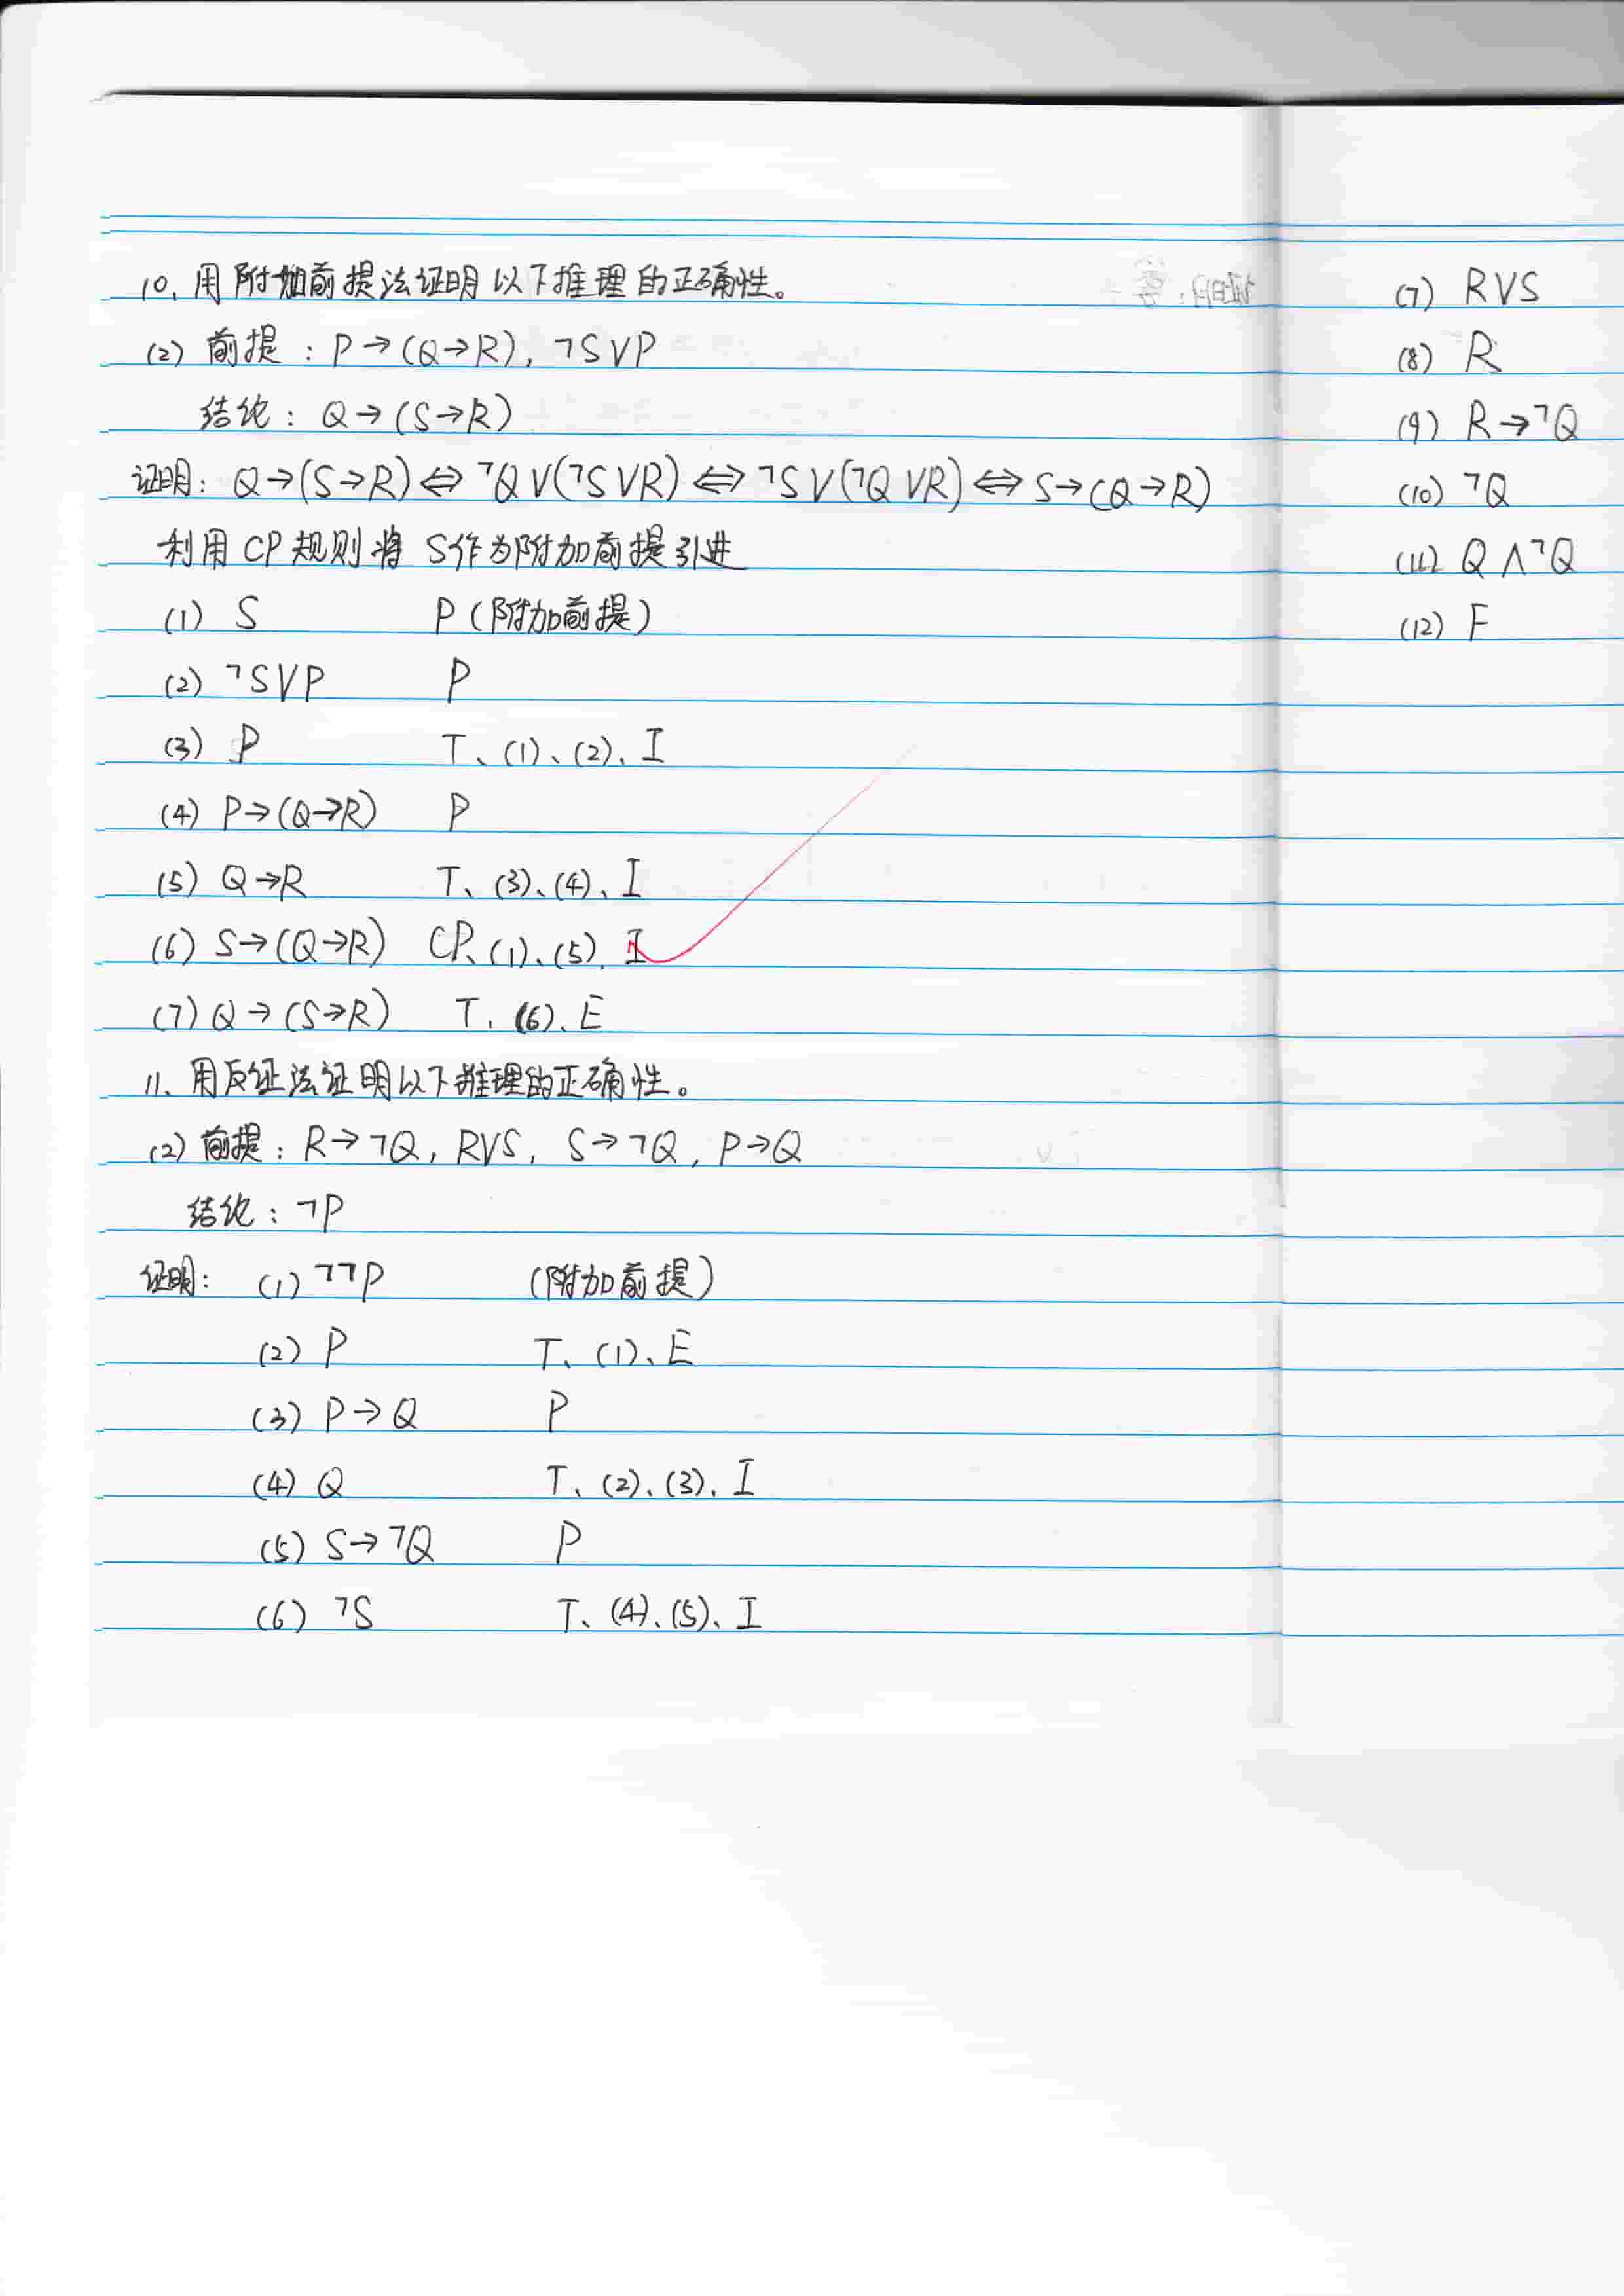 10、用附加前提法证明以下推理的正确性。
(2) 前提：P→(Q→R), ¬S∨P
结论：Q→(S→R)
证明：Q→(S→R)⇔¬Q∨(¬S∨R)⇔¬S∨(¬Q∨R)⇔S→(Q→R)
利用CP规则将S作为附加前提引进
(1) S P(附加前提)
(2) ¬S∨P P
(3) P T、(1)、(2)、I
(4) P→(Q→R) P
(5) Q→R T、(3)、(4)、I
(6) S→(Q→R) CP、(1)、(5)、I
(7) Q→(S→R) T、(6)、E
11、用反证法证明以下推理的正确性。
(2) 前提：R→¬Q, R∨S, S→¬Q, P→Q
结论：¬P
证明：(1) ¬¬P (附加前提)
(2) P T、(1)、E
(3) P→Q P
(4) Q T、(2)、(3)、I
(5) S→¬Q P
(6) ¬S T、(4)、(5)、I
(7) R∨S
(8) R
(9) R→¬Q
(10) ¬Q
(11) Q∧¬Q
(12) F